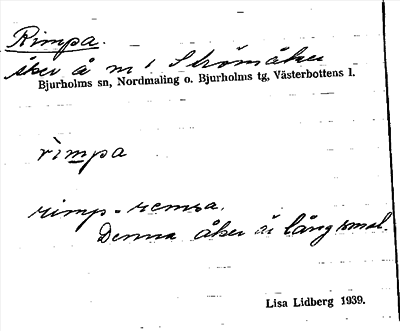 Rimpa.
åker å nr 1 Strömåker
Bjurholms sn, Nordmaling o. Bjurholms tg, Västerbottens l.
rimpa
rimp = remsa.
Denna åker är lång smal.
Lisa Lidberg 1939.